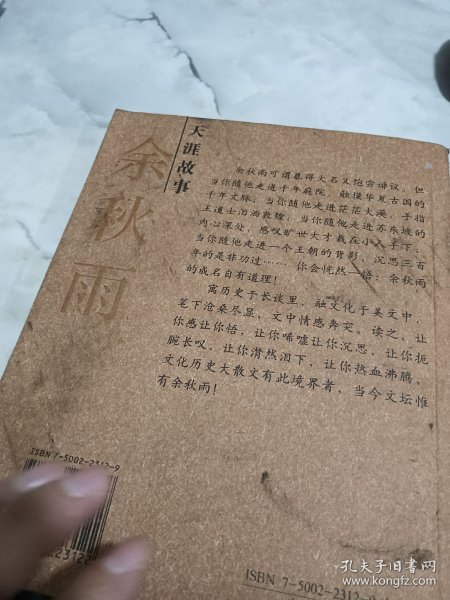 余秋雨
天涯故事
余秋雨可谓暴得大名又饱尝诽议，但
当你随他走进千年庭院，触摸华夏古国的
千年文脉；当你随他走进茫茫大漠，手指
王道士泪洒敦煌；当你随他走进苏东坡的
内心深处，感叹旷世大才栽在小人手下；
当你随他走进一个王朝的背影，沉思三百
年的是非功过……你会恍然一悟：余秋雨
的成名自有道理！
寓历史于长谈里，融文化于美文中，
笔下沧桑尽显，文中情感奔突。读之，让
你感让你悟，让你唏嘘让你沉思，让你扼
腕长叹，让你潸然泪下，让你热血沸腾，
文化历史大散文有此境界者，当今文坛惟
有余秋雨！
ISBN 7-5002-2312-9
ISBN 7-5002-2312-9
孔夫子旧书网
www.kongfz.com